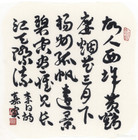 故人西辞黄鹤
楼烟花三月下
扬州孤帆远影
碧空尽唯见长
江天际流